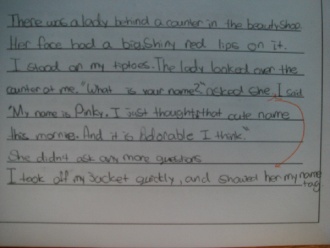 There was a lady behind a counter in the beauty shop
Her face had a big shiny red lips on it.
I stood on my tiptoes. The lady looked over the
counter at me. "What is your name?" asked she. I said
"My name is Pinky. I just thought that cute name
this morning. And it is Adorable I think."
She didn't ask any more questions
I took off my Jacket quickly, and showed her my name
tag